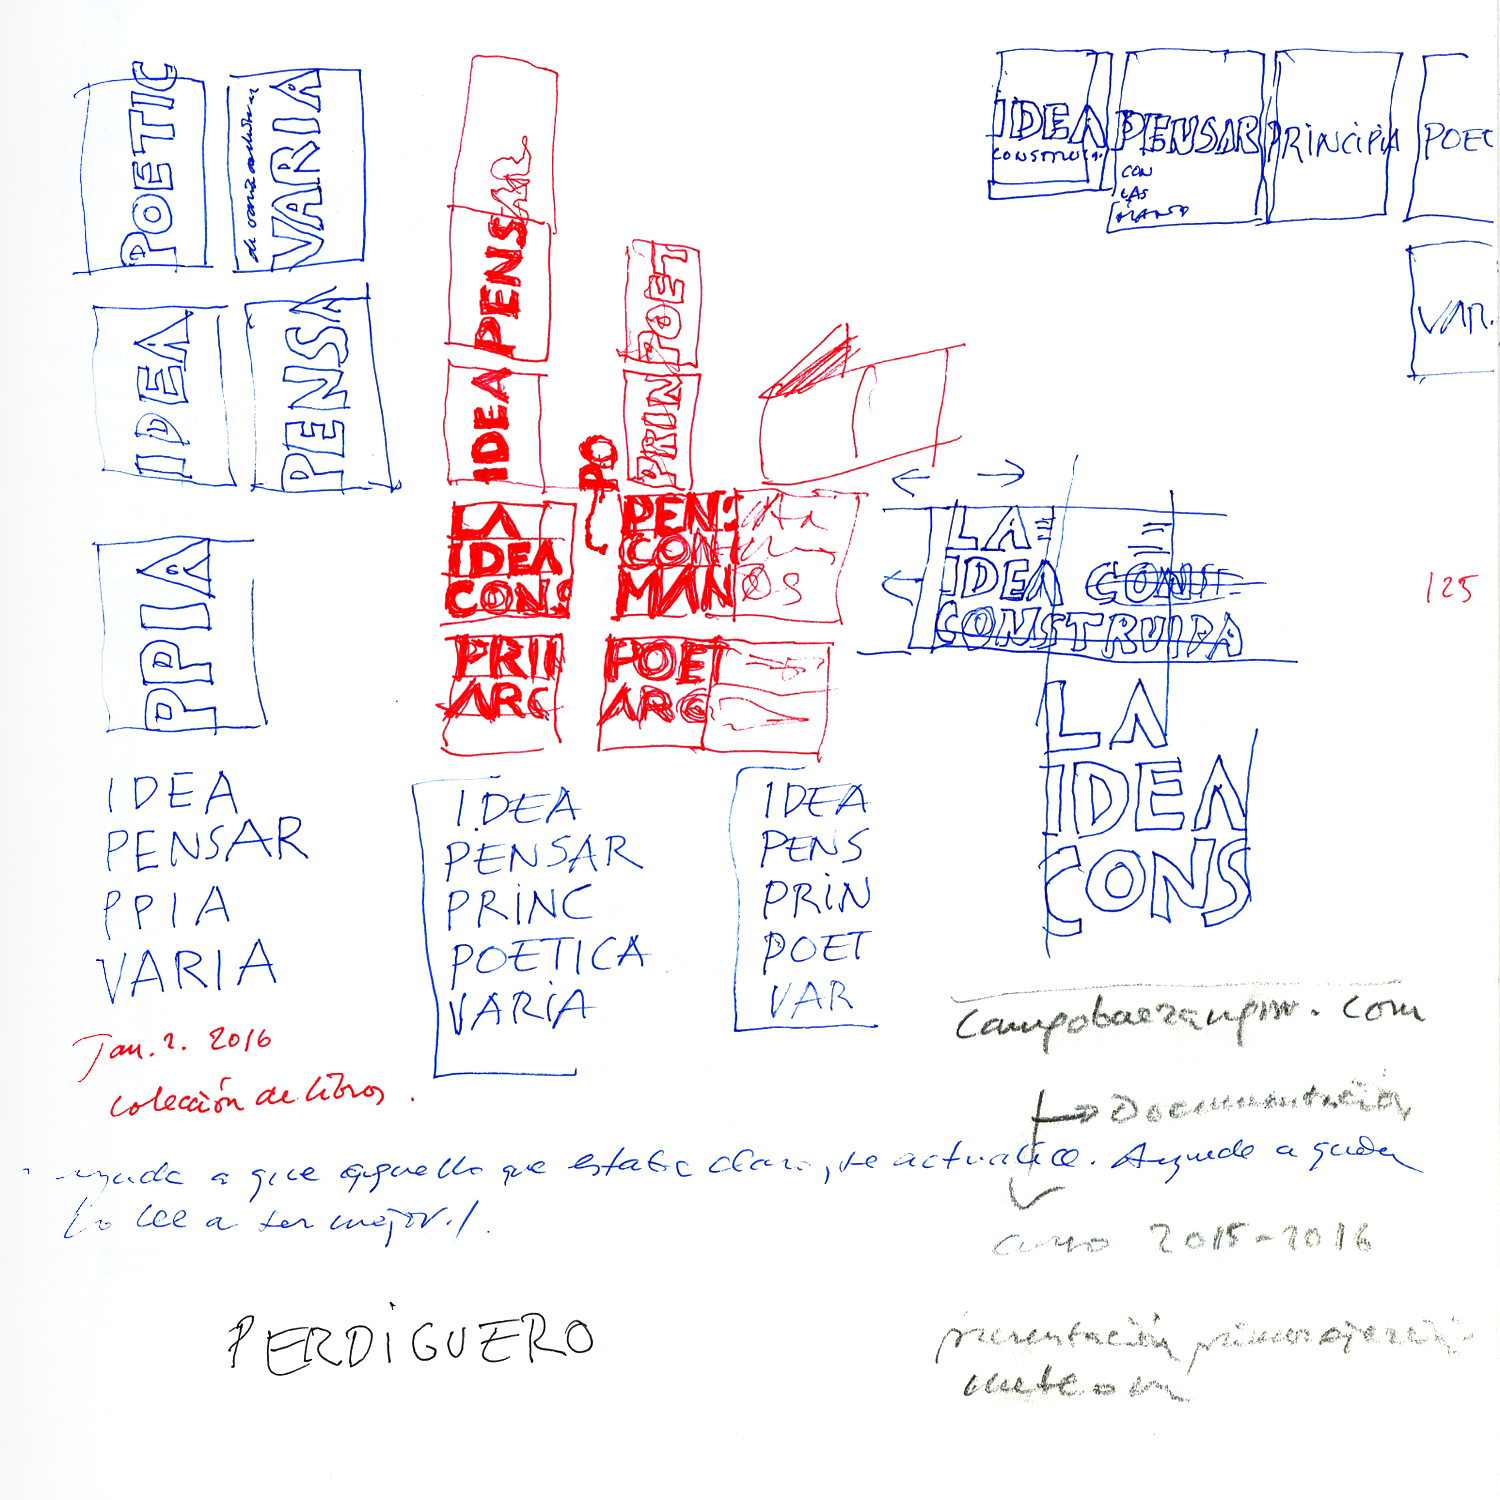 POETIC
VARIA
IDEA
PENSA
PPIA
PENSAR
IDEA
POET
PRIN
PO
LA
IDEA
CONS
PEN
CON
MAN
OS
PRII
ARC
POET
ARC
IDEA
CONSTRUIDA
PENSAR
CON
LAS
MANOS
PRiNCiPiA
POEC
VAR.
LA
IDEA CONST
CONSTRUIDA
125
LA
IDEA
CONS
IDEA
PENSAR
PPIA
VARIA
IDEA
PENSAR
PRiNC
POETICA
VARiA
IDEA
PENS
PRiN
POET
VAR
Jan. 2. 2016
colección de libros.
campobaeza .com
Documentación
ayuda a que aquello que estaba claro, se actualice. Ayude a
a ser mejor.
2015-2016
PERDiGUERO
presentación primer ejercicio